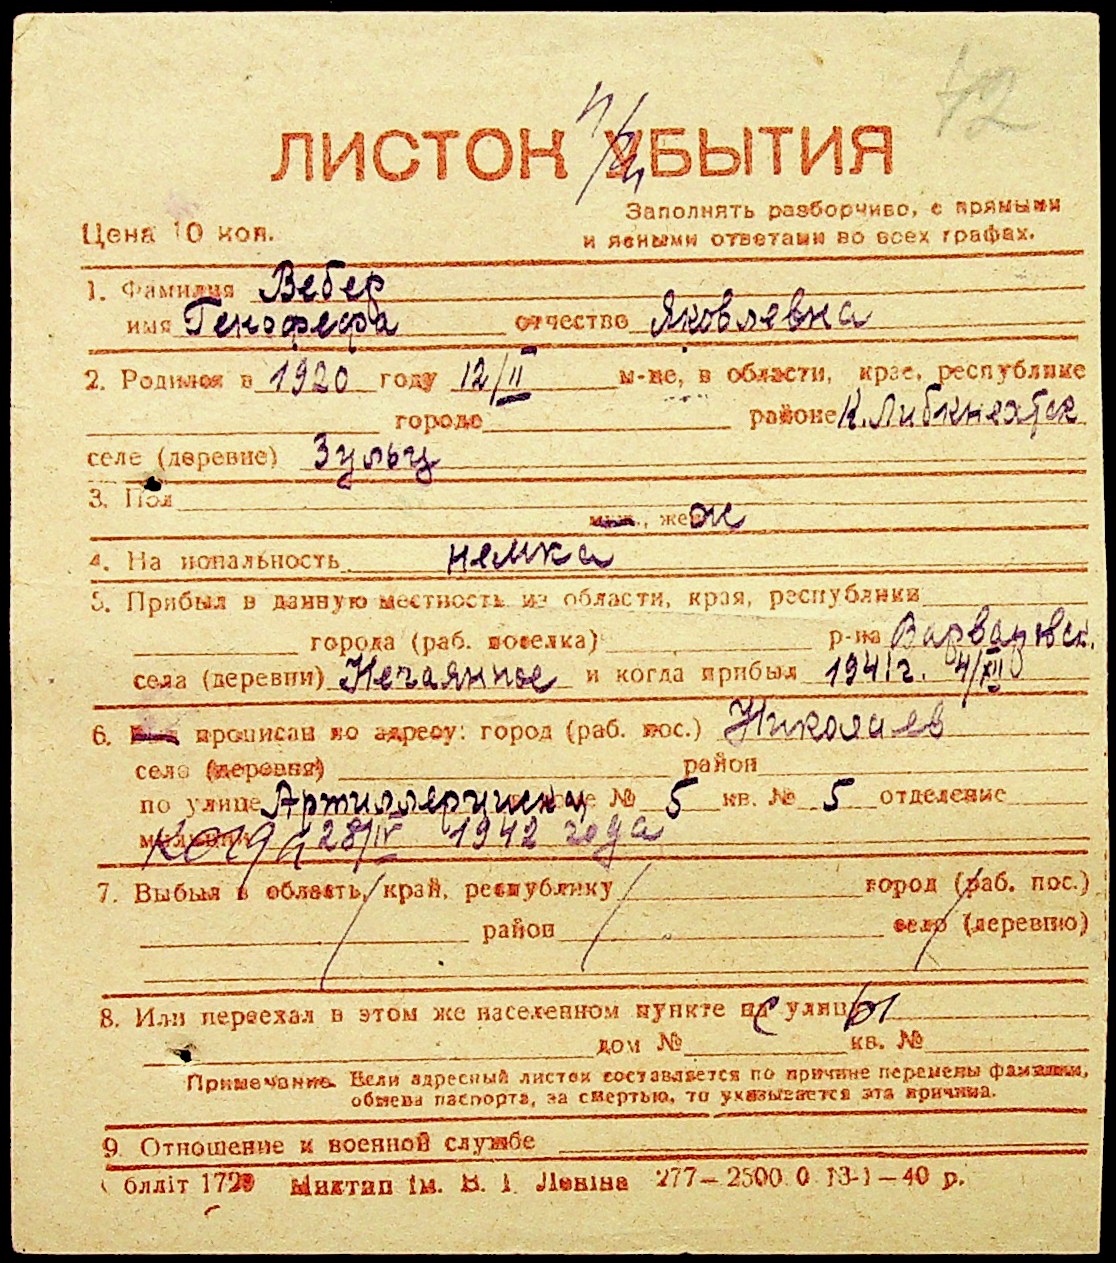 42
ЛИСТОК ПРИБЫТИЯ
Цена 10 коп.
Заполнять разборчиво, с прямыми
и ясными ответами во всех графах.
1. Фамилия Вебер
имя Генофефа отчество Яковлевна
2. Родился в 1920 году 12/II м-це, в области, крае, республике
городе районе К.Либкнехтск
селе (деревне) Зульц
3. Пол
муж., жен ж
4. Национальность немка
5. Прибыл в данную местность из области, края, республики
города (раб. поселка) р-на Варваровск.
села (деревни) Нечаянное и когда прибыл 1941г. 4/XII
6. прописан по адресу: город (раб. пос.) Николаев
село (деревня) район
по улице Артиллерийск № 5 кв. № 5 отделение
милиции когда 28/IV 1942 года
7. Выбыл в область, край, республику город (раб. пос.)
район село (деревню)
8. Или переехал в этом же населенном пункте с улицы
дом № кв. №
Примечание. Если адресный листок составляется по причине перемены фамилии,
обмена паспорта, за смертью, то указывается эта причина.
9. Отношение к военной службе
блліт 1729 Миктип ім. В. І. Леніна 277—2500.0 13-1—40 р.